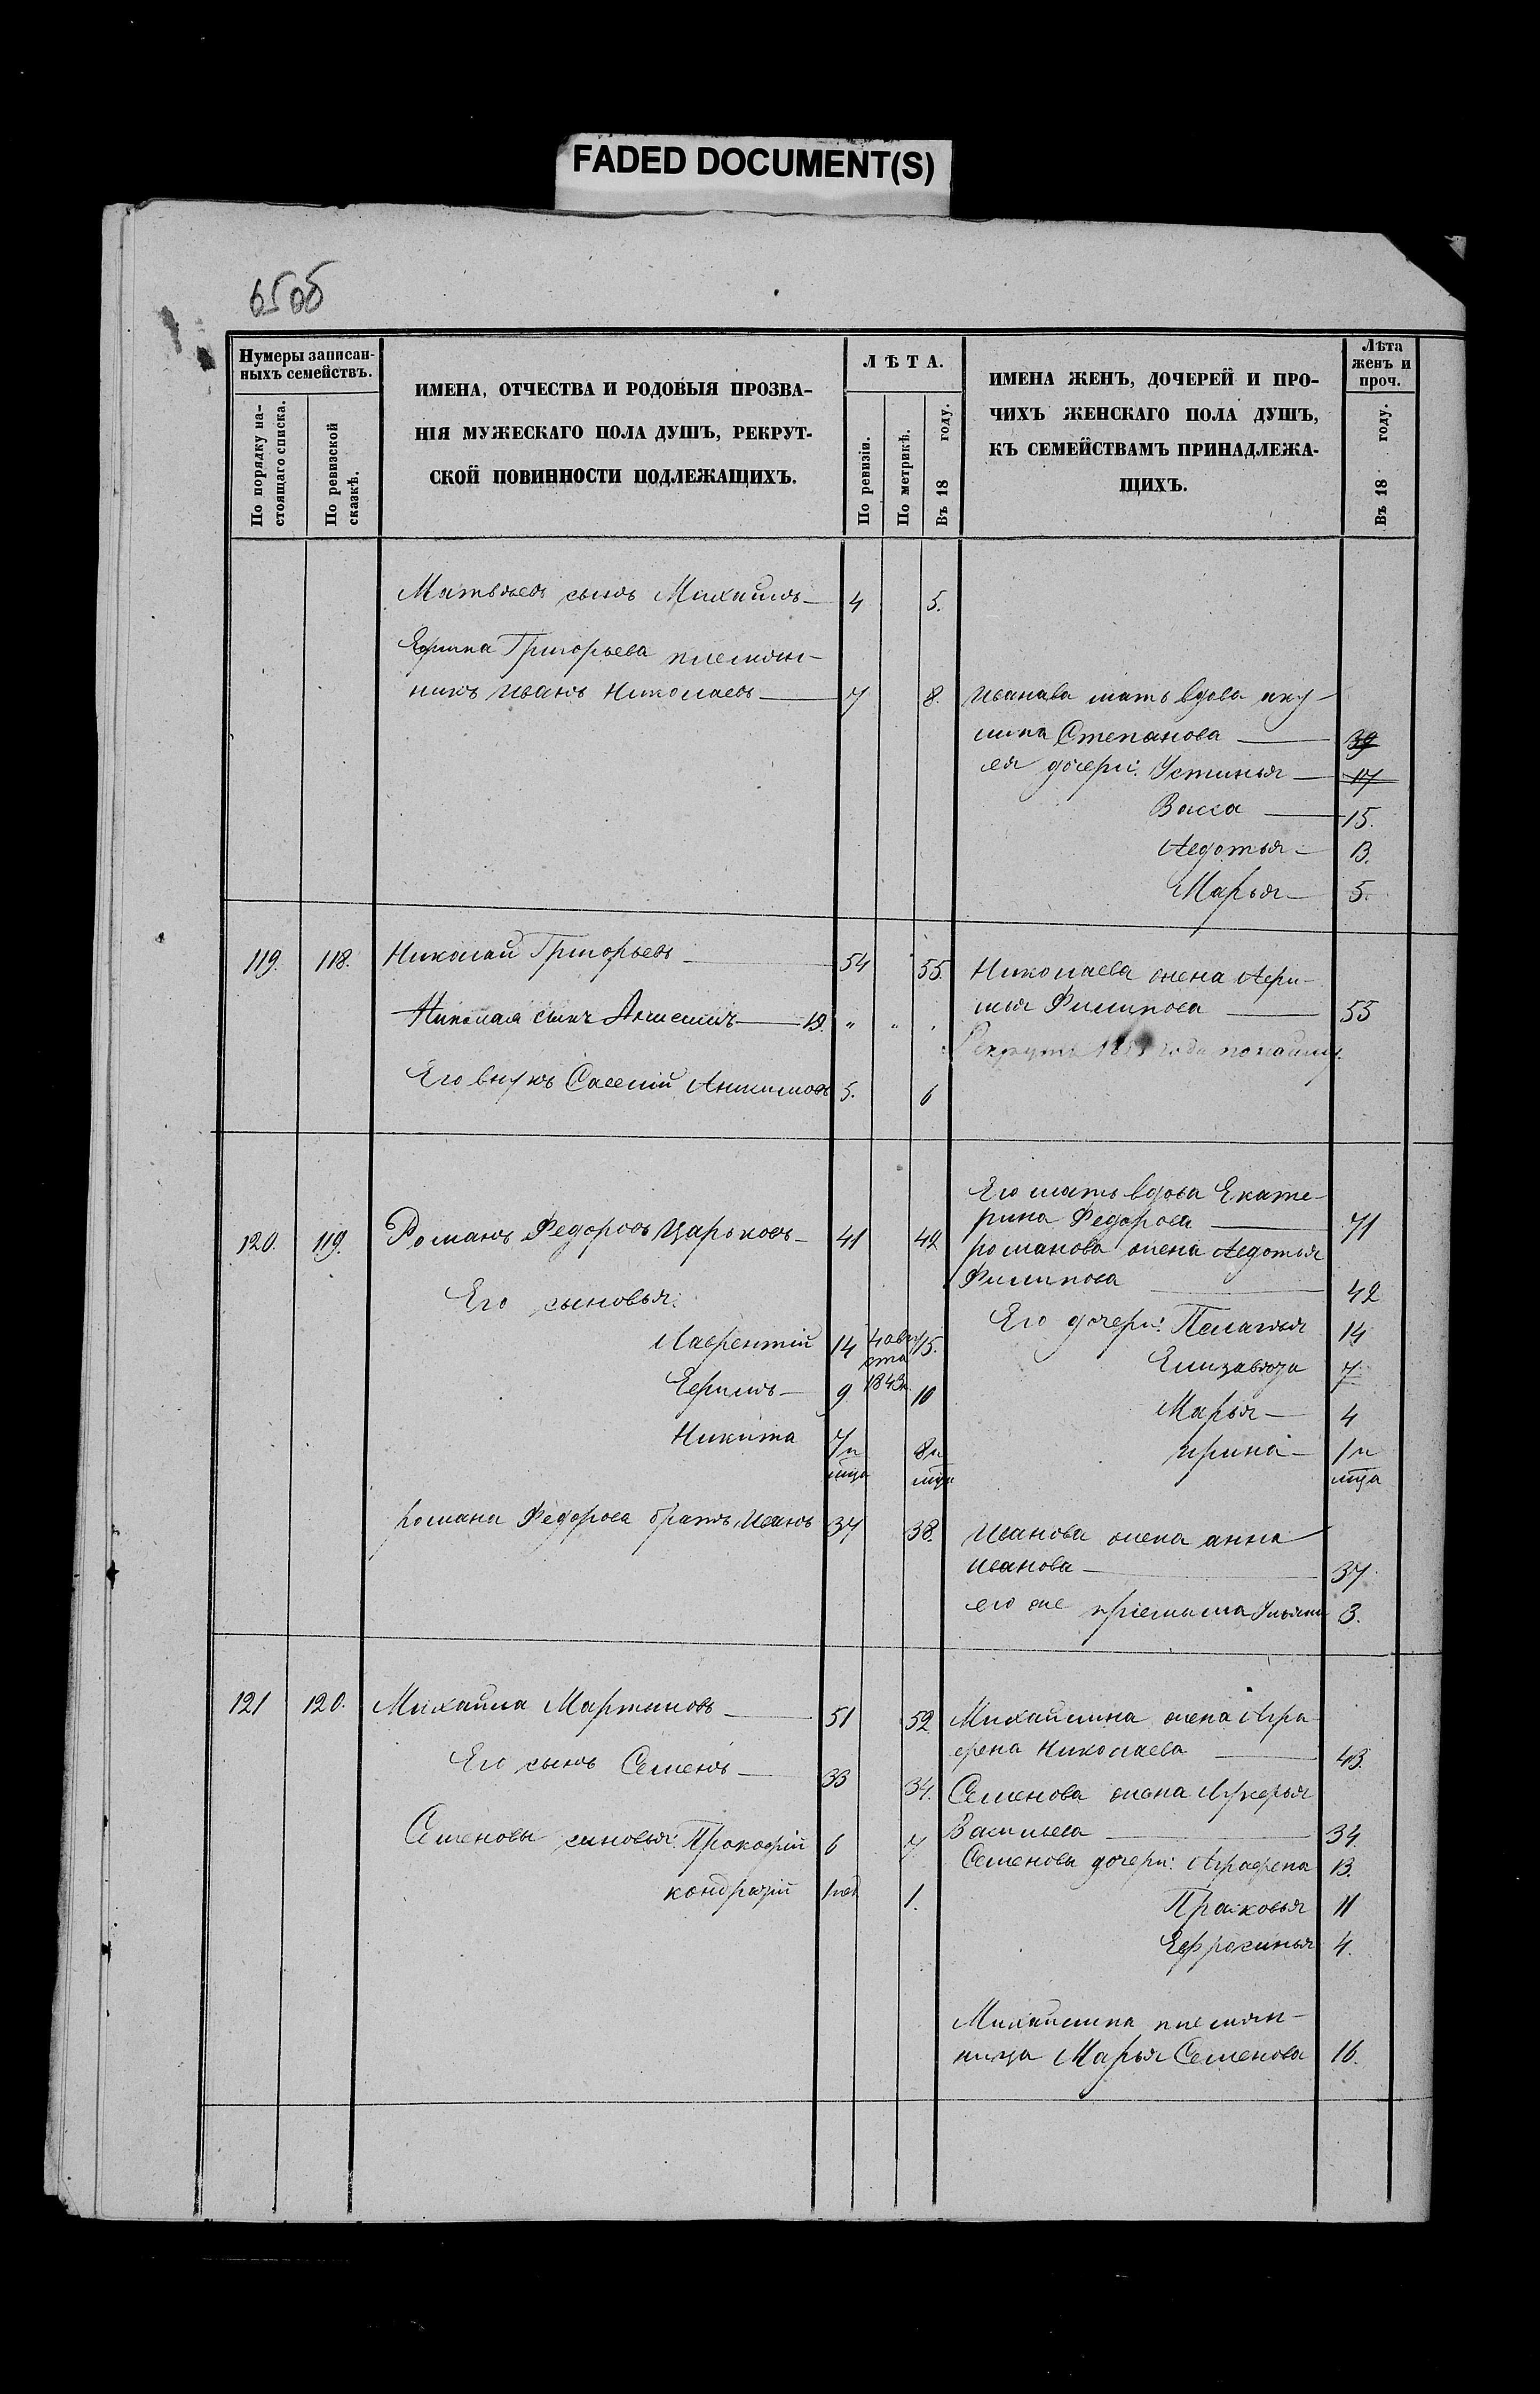 FADED DOCUMENT(S)
65 об
Нумеры записан-
ныхъ семействъ.
По порядку на-
стоящаго списка.
По ревизской
сказкѣ.
ИМЕНА, ОТЧЕСТВА И РОДОВЫЯ ПРОЗВА-
НІЯ МУЖЕСКАГО ПОЛА ДУШЪ, РЕКРУТ-
СКОЙ ПОВИННОСТИ ПОДЛЕЖАЩИХЪ.
ЛѢТА.
По ревизіи.
По метрикѣ.
Въ 18 году.
ИМЕНА ЖЕНЪ, ДОЧЕРЕЙ И ПРО-
ЧИХЪ ЖЕНСКАГО ПОЛА ДУШЪ,
КЪ СЕМЕЙСТВАМЪ ПРИНАДЛЕЖА-
ЩИХЪ.
Лѣта
женъ и
проч.
Въ 18 году.
Матвѣевъ сынъ Михаилъ — 4 5.
Ефима Григорьева племян-
никъ Иванъ Николаевъ — 7 8. Иванова мать вдова аку-
лина Степанова — 39
ея дочери: Устинья — 17
Васса — 15.
Авдотья — 13.
Марья — 5.
119. 118. Николай Григорьевъ — 54 55. Николаева жена Афи-
мья Филипова — 55
Николая сынъ Анисимъ — 19. " " "
Рекрутъ года
Его внукъ Савелій Анисимовъ 5. 6
Его мать вдова Екате-
рина Федорова — 71
120. 119. Романъ Федоровъ Царьковъ — 41 42 романова жена Авдотья
Филипова — 42
Его сыновья: Его дочери: Пелагья 14
Лаврентій 14 4 авгу 15.
ста
Елизавѣта 7
Ефимъ — 9 1843 10
Марья — 4
Никита 7 н 8 н
мца мца
ирина — 1 н
мца
Романа Федорова братъ Иванъ 37 38. Иванова жена анна
Иванова — 37.
его же пріемыша Ульяна 3.
121 120. Михайла Мартиновъ — 51 52 Михайлина жена Агра
фена Николаева — 43.
Его сынъ Семенъ — 33 34. Семенова жена Лукерья
Васильева — 34.
Семеновы сыновья: Прокофій 6 7
Семеновы дочери: Аграфена 13.
кондратій 1 нед 1.
Прасковья 11
Ефросинья 4.
Михайлина племян-
ница Марья Семенова 16.